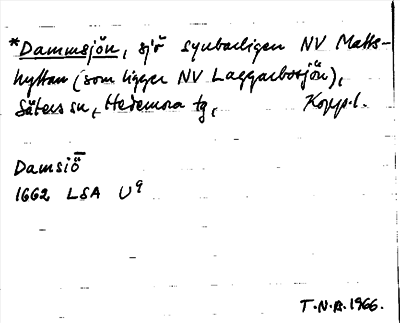 *Dammsjön, sjö synbarligen NV Matts-
hyttan (som ligger NV Laggarbosjön),
Säters sn, Hedemora tg, Kopp.l.
Damsiö
1662 LSA U9
T.N.A. 1966.